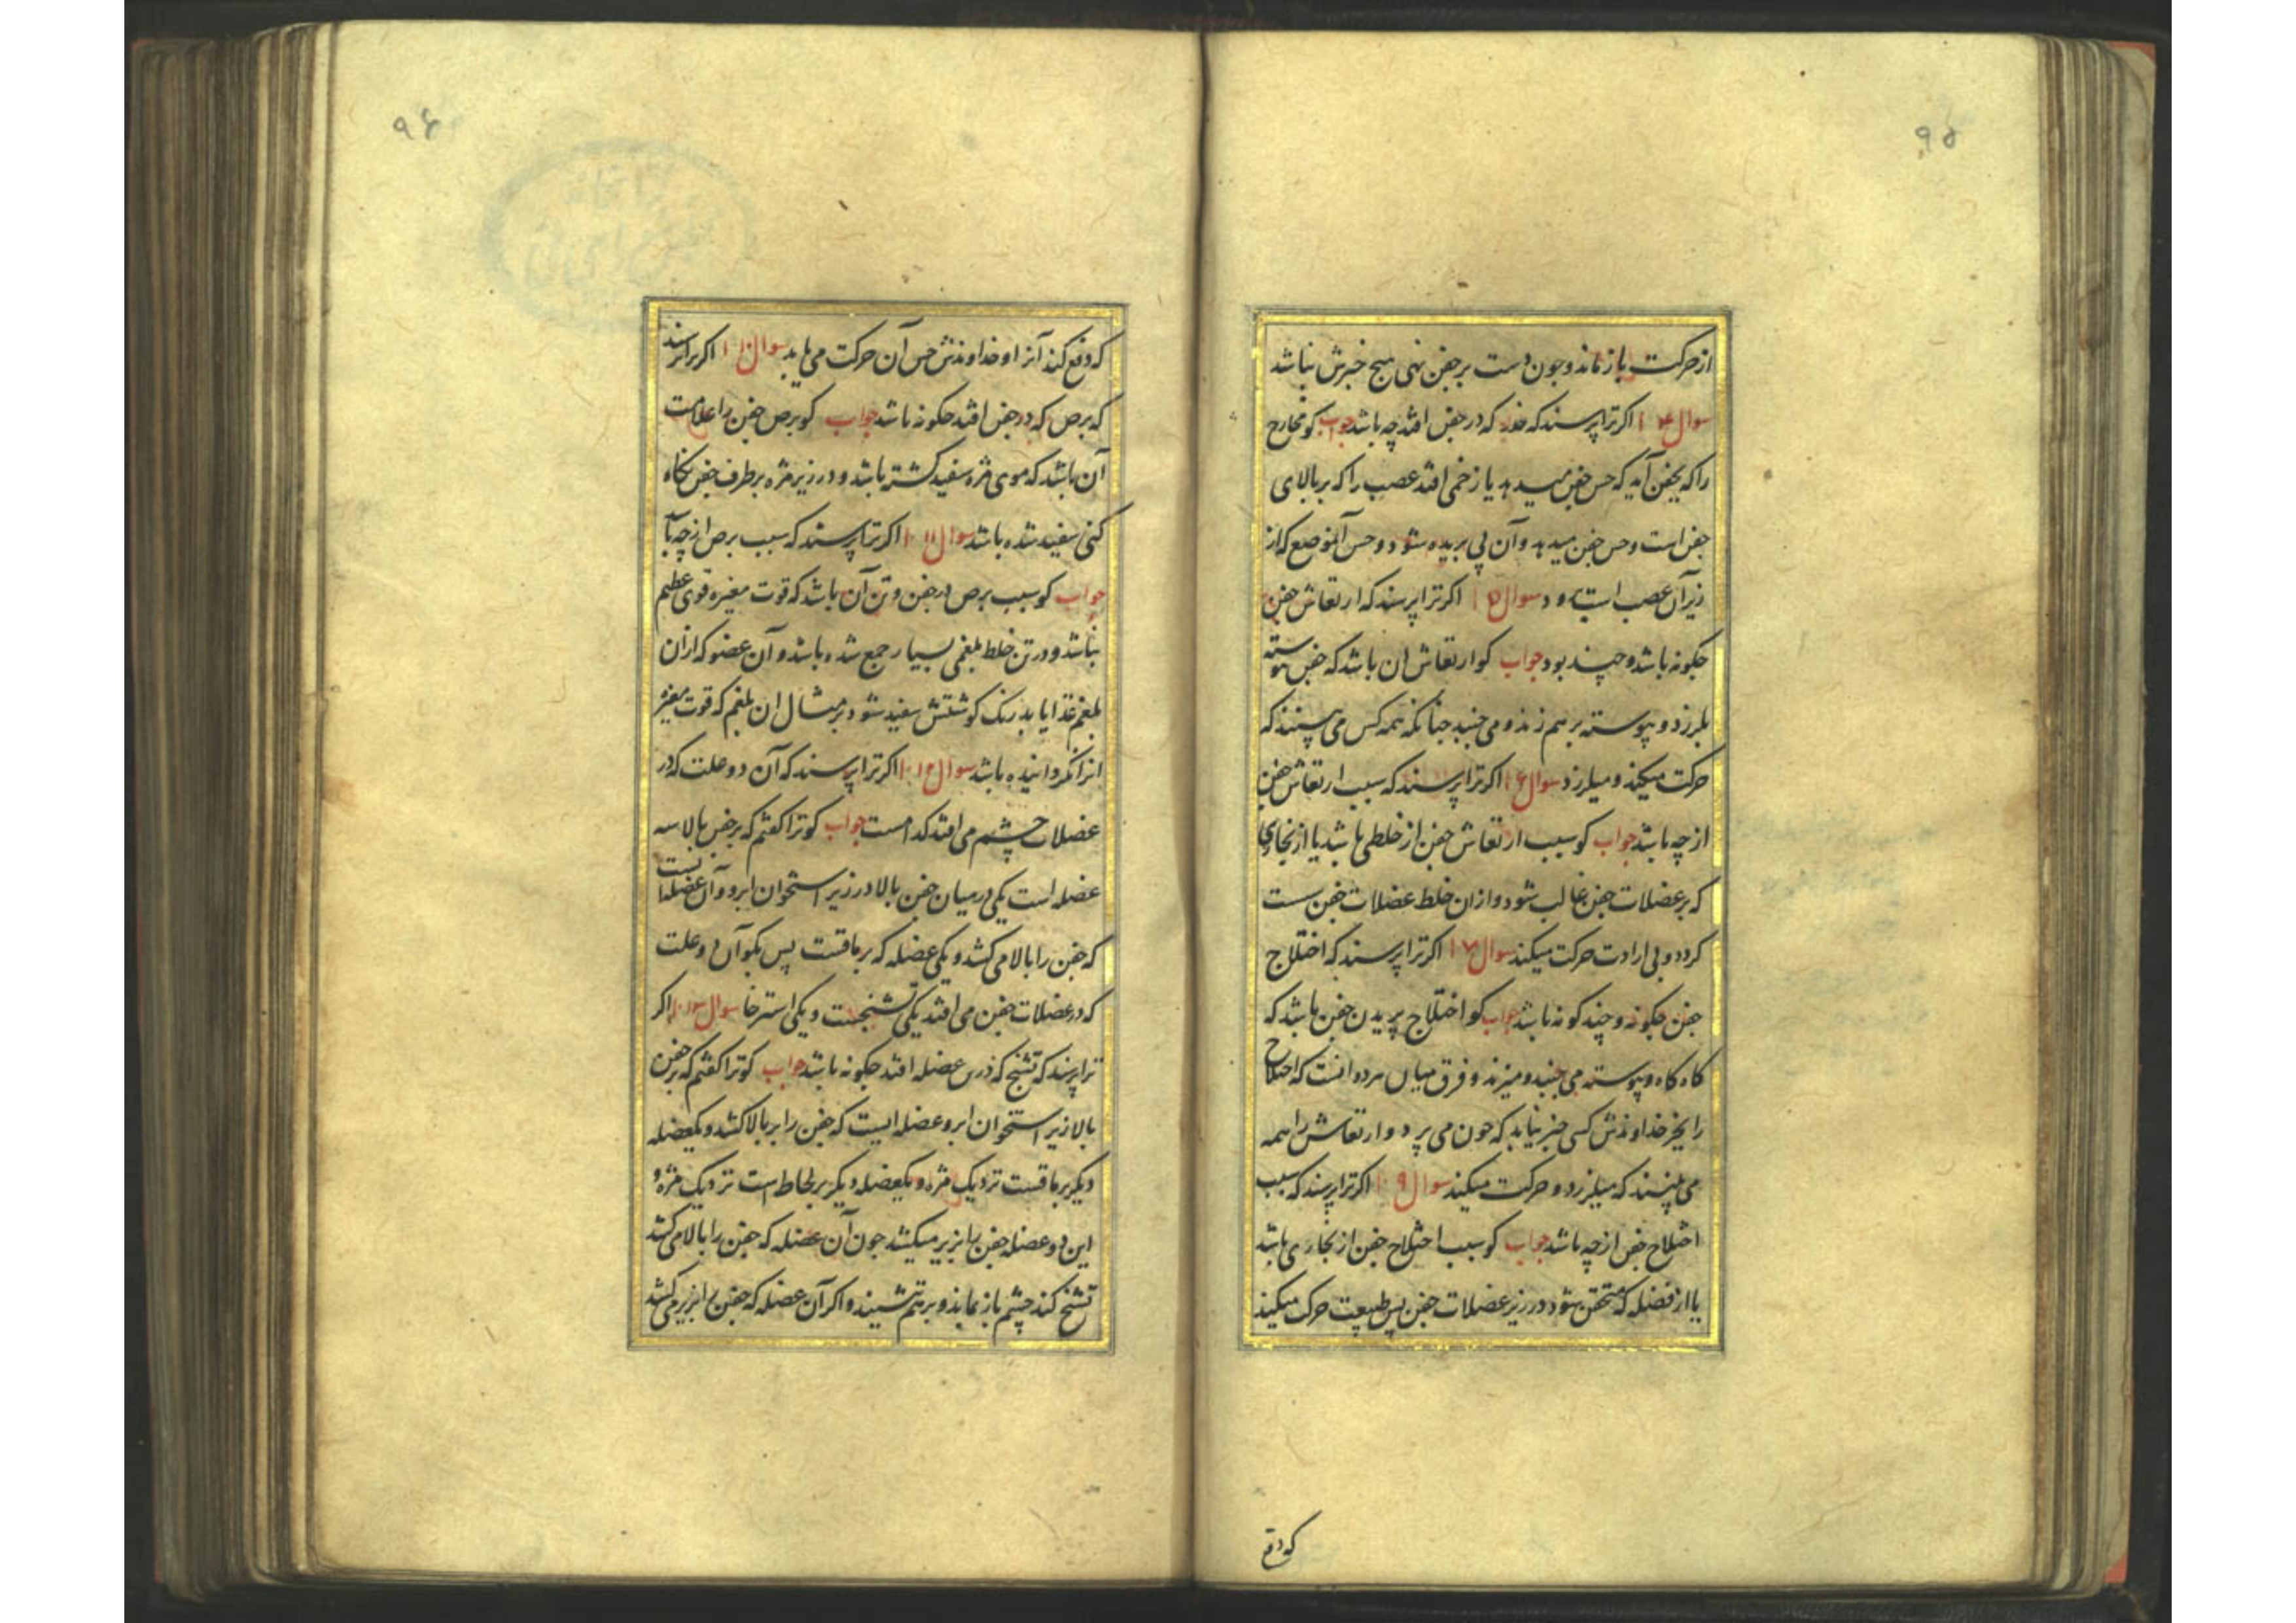 ۹۵
از حرکت باز ماند و چون دست بر جفن نهی هیچ خبرش نباشد
سوال ۱۰۴ اکر ترا پرسند که خدر که در جفن افتد چه باشد جواب کو مخارج
را که بجفن آید که حس جفن میدهد یا زخمی افتد عصب را که بر بالای
جفن است و حس جفن میدهد و آن پی بریده شود و حس آنموضع که از
زیر آن عصب است برود سوال ۱۰۵ اکر ترا پرسند که ارتعاش جفن
چکونه باشد و چند بود جواب کو ارتعاش ان باشد که جفن پیوسته
بلرزد و پیوسته بر هم زند و می جنبد چنانکه همه کس می بینند که
حرکت میکند و میلرزد سوال ۱۰۶ اکر ترا پرسند که سبب ارتعاش جفن
از چه باشد جواب کو سبب ارتعاش جفن از خلطی باشد یا از بخاری
که بر عضلات جفن غالب شود و ازان خلط عضلات جفن سست
کردد و بی ارادت حرکت میکند سوال ۱۰۷ اکر ترا پرسند که اختلاج
جفن چکونه و چند کونه باشد جواب کو اختلاج پریدن جفن باشد که
کاه کاه و پیوسته می جنبد و میزند و فرق میان هر دو انست که اختلاج
را بجز خداوندش کسی خبر نیابد که چون می پرد و ارتعاش را همه
می بینند که میلرزد و حرکت میکند سوال ۱۰۹ اکر ترا پرسند که سبب
اختلاج جفن از چه باشد جواب کو سبب اختلاج جفن از بخاری باشد
یا از فضله که محتقن شود در زیر عضلات جفن پس طبیعت حرکت میکند
که دفع
۹۶
که دفع کند آنرا و خداوندش حس آن حرکت می یابد سوال ۱۱۰ اکر ترا پرسند
که برص که در جفن افتد چکونه باشد جواب کو برص جفن را علامت
آن باشد که موی مژه سفید کشته باشد و در زیر مژه بر طرف جفن نکاه
کنی سفید شده باشد سوال ۱۱۱ اکر ترا پرسند که سبب برص از چه باشد
جواب کو سبب برص در جفن و تن آن باشد که قوت مغیره قوی عظیم
نباشد و در تن خلط بلغمی بسیار جمع شده باشد و آن عضو که ازان
بلغم غذا یابد رنک کوشتش سفید شود بر مثال ان بلغم که قوت مغیره
انرا نکردانیده باشد سوال ۱۱۲ اکر ترا پرسند که آن دو علت که در
عضلات چشم می افتد کدامست جواب کو ترا کفتم که بر جفن بالا سه
عضله است یکی در میان جفن بالا در زیر استخوان ابرو و آن عضله است
که جفن را بالا می کشد و یکی عضله که بر ماقست پس بکو آن دو علت
که در عضلات جفن می افتد یکی تشنجست و یکی استرخا سوال ۱۱۳ اکر
ترا پرسند که تشنج که درین عضله افتد چکونه باشد جواب کو ترا کفتم که بر جفن
بالا زیر استخوان ابرو عضله ایست که جفن را بر بالا کشد و یکعضله
دیکر بر ماقست نزدیک مژه و یکعضله دیکر بر لحاظ است نزدیک مژه و
این دو عضله جفن را بزیر میکشند چون آن عضله که جفن را بالا می کشد
تشنج کند چشم باز بماند و بر هم ننشیند و اکر آن عضله که جفن را بزیر می کشد